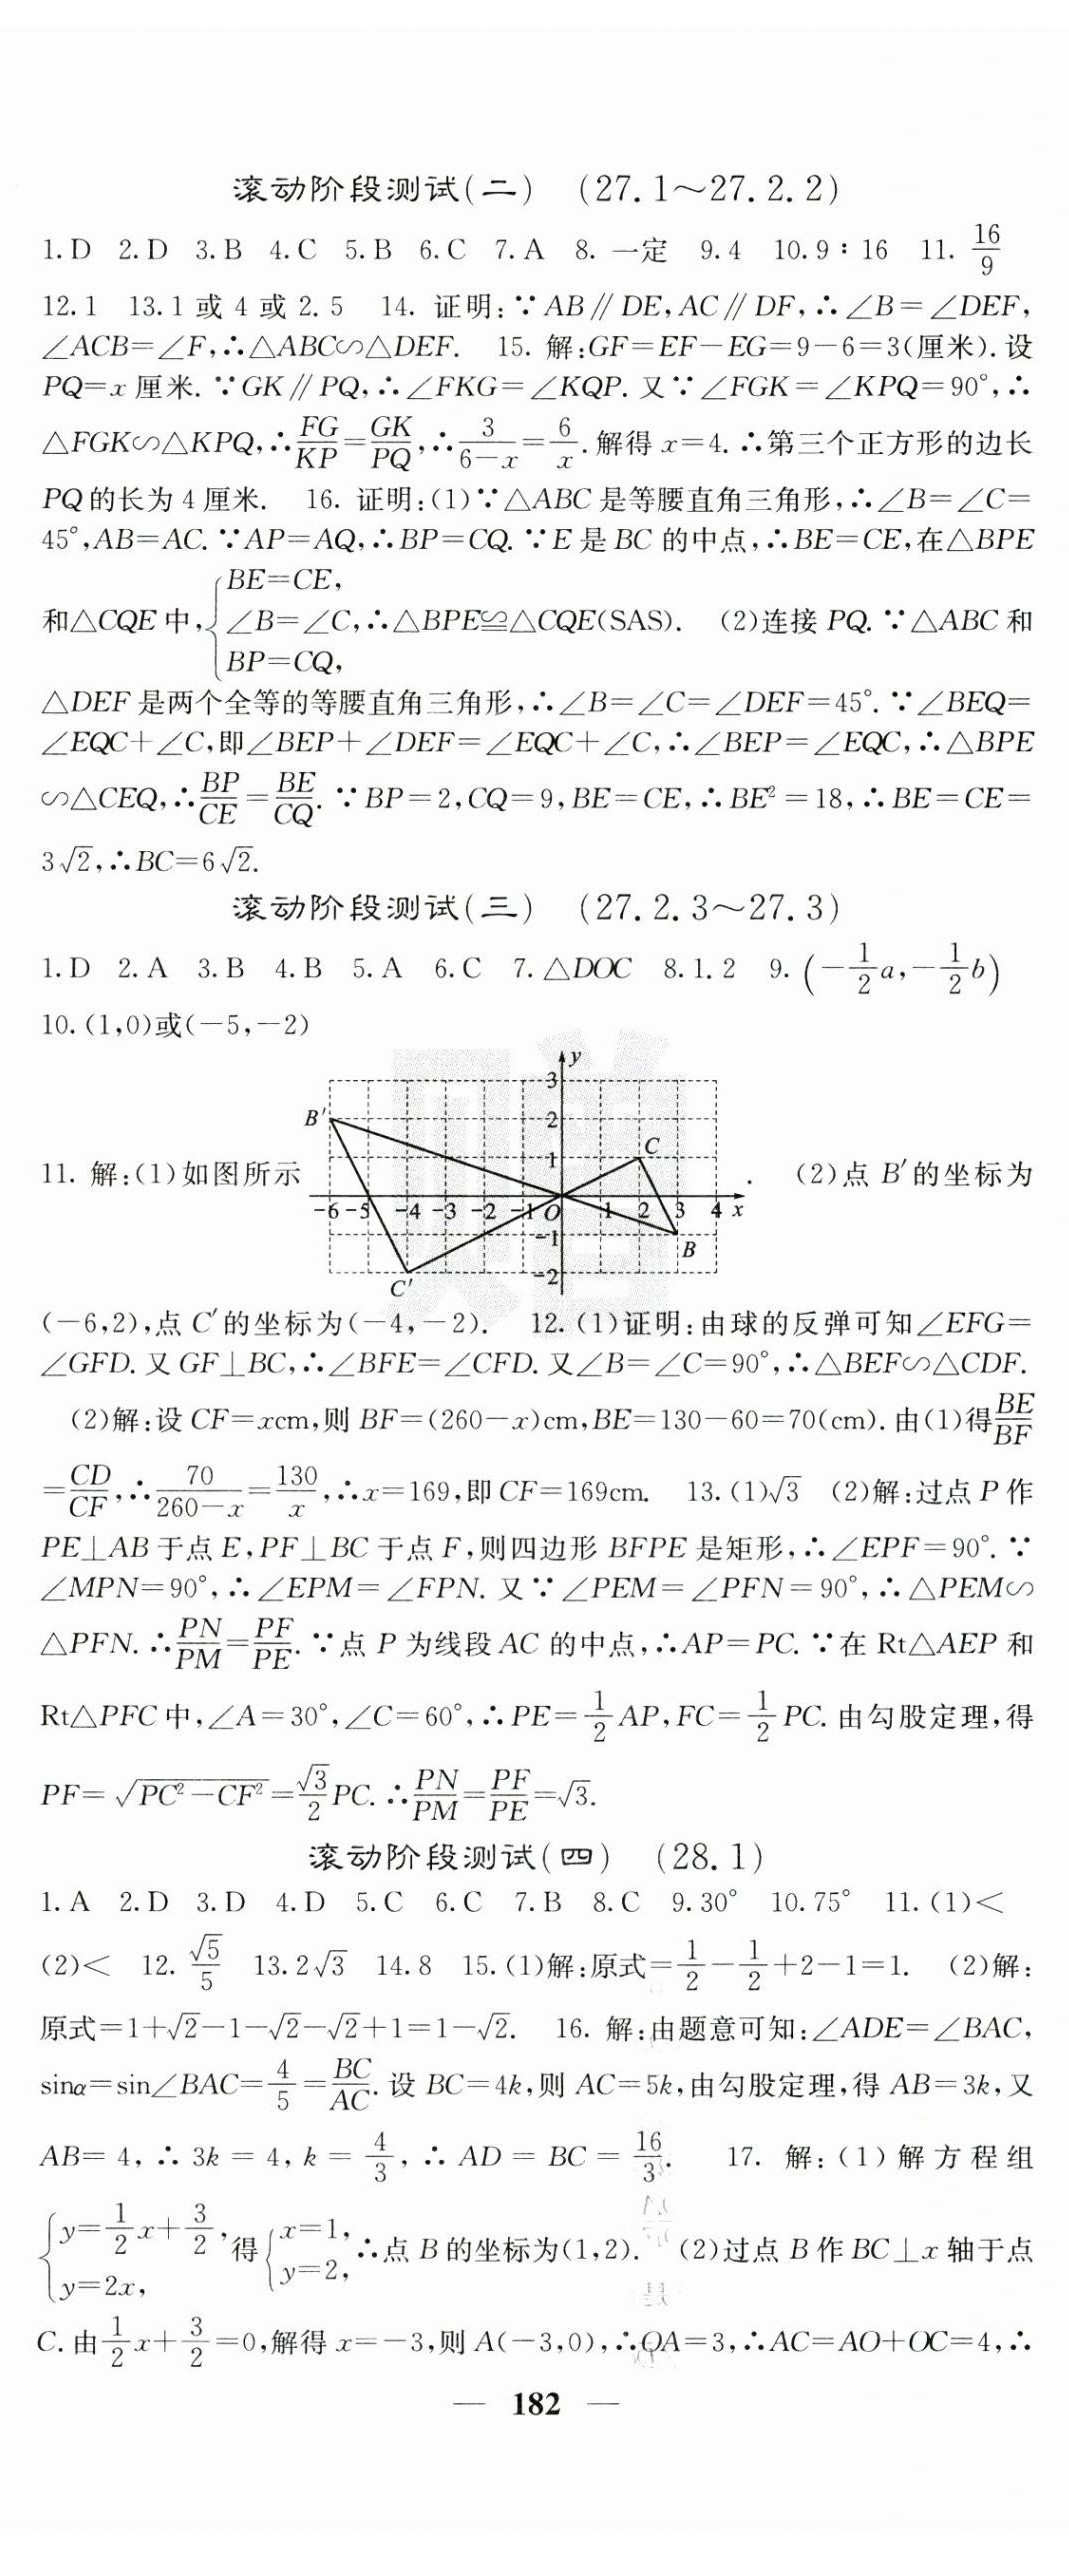 滚动阶段测试(二) (27.1～27.2.2)
1.D 2.D 3.B 4.C 5.B 6.C 7.A 8.一定 9.4 10.9∶16 11.16/9
12.1 13.1或4或2.5 14.证明:∵AB∥DE,AC∥DF,∴∠B=∠DEF,
∠ACB=∠F,∴△ABC∽△DEF. 15.解:GF=EF-EG=9-6=3(厘米).设
PQ=x厘米.∵GK∥PQ,∴∠FKG=∠KQP.又∵∠FGK=∠KPQ=90°,∴
△FGK∽△KPQ,∴FG/KP=GK/PQ,∴3/(6-x)=6/x.解得x=4.∴第三个正方形的边长
PQ的长为4厘米. 16.证明:(1)∵△ABC是等腰直角三角形,∴∠B=∠C=
45°,AB=AC.∵AP=AQ,∴BP=CQ.∵E是BC的中点,∴BE=CE,在△BPE
和△CQE中,{BE=CE, ∠B=∠C, BP=CQ, ∴△BPE≌△CQE(SAS). (2)连接PQ.∵△ABC和
△DEF是两个全等的等腰直角三角形,∴∠B=∠C=∠DEF=45°.∵∠BEQ=
∠EQC+∠C,即∠BEP+∠DEF=∠EQC+∠C,∴∠BEP=∠EQC,∴△BPE
∽△CEQ,∴BP/CE=BE/CQ.∵BP=2,CQ=9,BE=CE,∴BE²=18,∴BE=CE=
3√2,∴BC=6√2.
滚动阶段测试(三) (27.2.3～27.3)
1.D 2.A 3.B 4.B 5.A 6.C 7.△DOC 8.1.2 9.(-1/2a,-1/2b)
10.(1,0)或(-5,-2)
y
3
B′ 2
C
1
11.解:(1)如图所示 . (2)点B′的坐标为
-6 -5 -4 -3 -2 -1 O 1 2 3 4 x
-1
B
-2
C′
(-6,2),点C′的坐标为(-4,-2). 12.(1)证明:由球的反弹可知∠EFG=
∠GFD.又GF⊥BC,∴∠BFE=∠CFD.又∠B=∠C=90°,∴△BEF∽△CDF.
(2)解:设CF=xcm,则BF=(260-x)cm,BE=130-60=70(cm).由(1)得BE/BF
=CD/CF,∴70/(260-x)=130/x,∴x=169,即CF=169cm. 13.(1)√3 (2)解:过点P作
PE⊥AB于点E,PF⊥BC于点F,则四边形BFPE是矩形,∴∠EPF=90°.∵
∠MPN=90°,∴∠EPM=∠FPN.又∵∠PEM=∠PFN=90°,∴△PEM∽
△PFN.∴PN/PM=PF/PE.∵点P为线段AC的中点,∴AP=PC.∵在Rt△AEP和
Rt△PFC中,∠A=30°,∠C=60°,∴PE=1/2AP,FC=1/2PC.由勾股定理,得
PF=√(PC²-CF²)=√3/2PC.∴PN/PM=PF/PE=√3.
滚动阶段测试(四) (28.1)
1.A 2.D 3.D 4.D 5.C 6.C 7.B 8.C 9.30° 10.75° 11.(1)<
(2)< 12.√5/5 13.2√3 14.8 15.(1)解:原式=1/2-1/2+2-1=1. (2)解:
原式=1+√2-1-√2-√2+1=1-√2. 16.解:由题意可知:∠ADE=∠BAC,
sinα=sin∠BAC=4/5=BC/AC.设BC=4k,则AC=5k,由勾股定理,得AB=3k,又
AB=4,∴3k=4,k=4/3,∴AD=BC=16/3. 17.解:(1)解方程组
{y=1/2x+3/2, y=2x, 得{x=1, y=2, ∴点B的坐标为(1,2). (2)过点B作BC⊥x轴于点
C.由1/2x+3/2=0,解得x=-3,则A(-3,0),∴OA=3,∴AC=AO+OC=4,∴
— 182 —